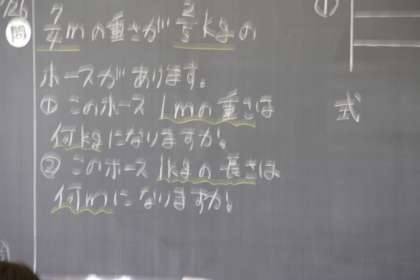 7/26
問
7/4 mの重さが 2/5 kgの
ホースがあります。
① このホース 1mの重さは
何kgになりますか。
② このホース 1kgの長さは
何mになりますか。
①
式